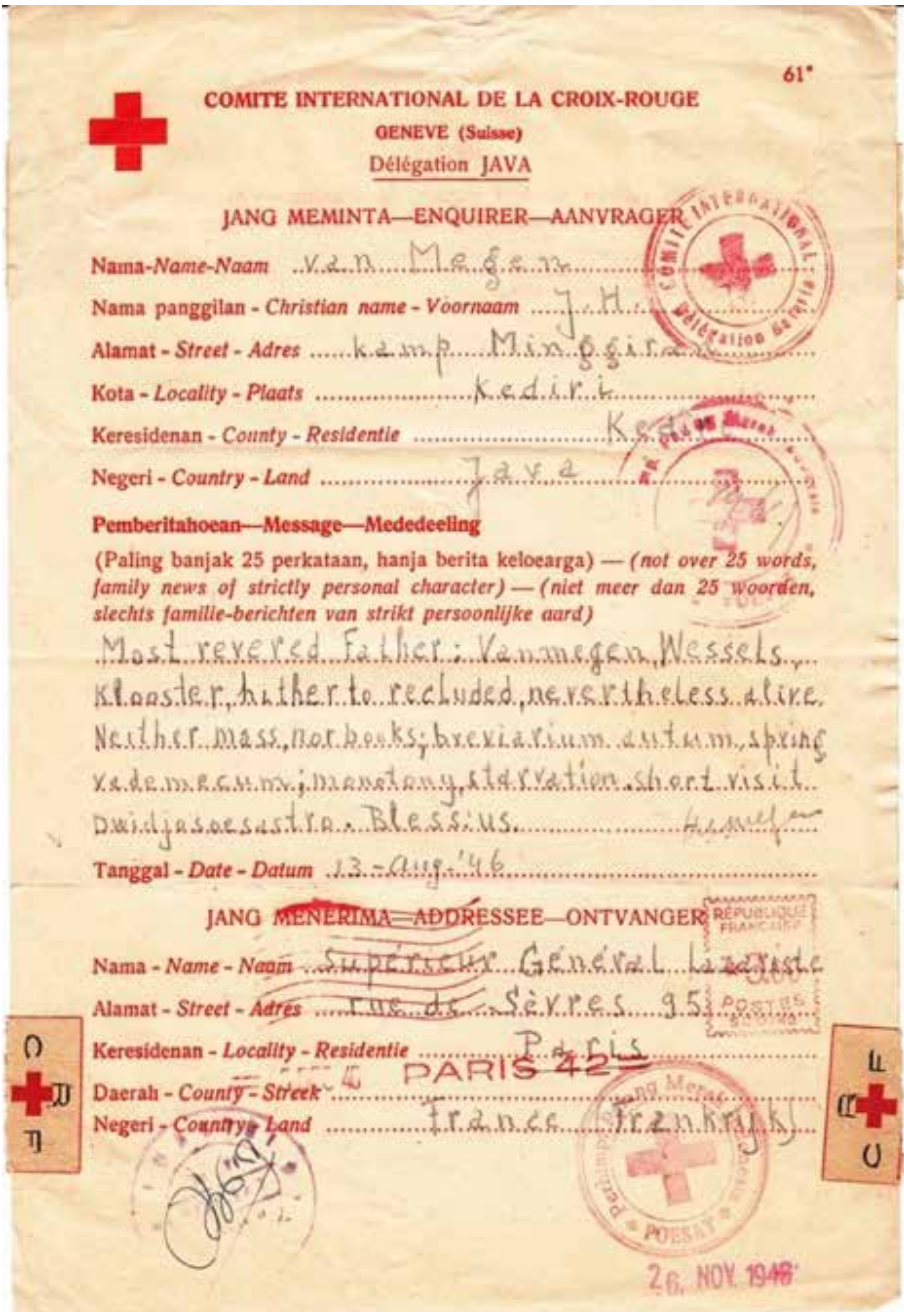 61*
COMITE INTERNATIONAL DE LA CROIX-ROUGE
GENEVE (Suisse)
Délégation JAVA
JANG MEMINTA—ENQUIRER—AANVRAGER
COMITE INTERNATIONAL
Délégation Batavia
Nama-Name-Naam van Megen
Nama panggilan - Christian name - Voornaam J.H.
Alamat - Street - Adres kamp Minggiran
Kota - Locality - Plaats Kediri
Keresidenan - County - Residentie Kediri
Negeri - Country - Land Java
Pemberitahoean—Message—Mededeeling
(Paling banjak 25 perkataan, hanja berita keloearga) — (not over 25 words,
family news of strictly personal character) — (niet meer dan 25 woorden,
slechts familie-berichten van strikt persoonlijke aard)
Most revered Father: Vanmegen, Wessels,
Klooster, hitherto recluded, nevertheless alive.
Neither mass, nor books; breviarium autum, spring
vademecum; monotony, starvation. short visit
Dwidjosoesastro. Blessius.
Tanggal - Date - Datum 13-Aug.'46
JANG MENERIMA—ADDRESSEE—ONTVANGER
RÉPUBLIQUE
FRANÇAISE
POSTES
Nama - Name - Naam Supérieur Général Lazariste
Alamat - Street - Adres rue de Sèvres 95
Keresidenan - Locality - Residentie Paris
PARIS 42
Daerah - County - Streek
Negeri - Country - Land France Frankrijk)
Palang Merah
POESAT
26. NOV. 1946
C R F
C R F